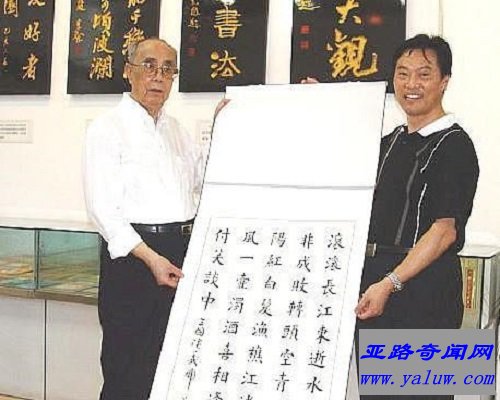 大觀
書法
頃波瀾
好者
園
滚滚長江東逝水
非成敗轉頭空青
陽紅白髮漁樵江
風一壺濁酒喜相逢
付笑談中
亚路奇闻网
www.yaluw.com